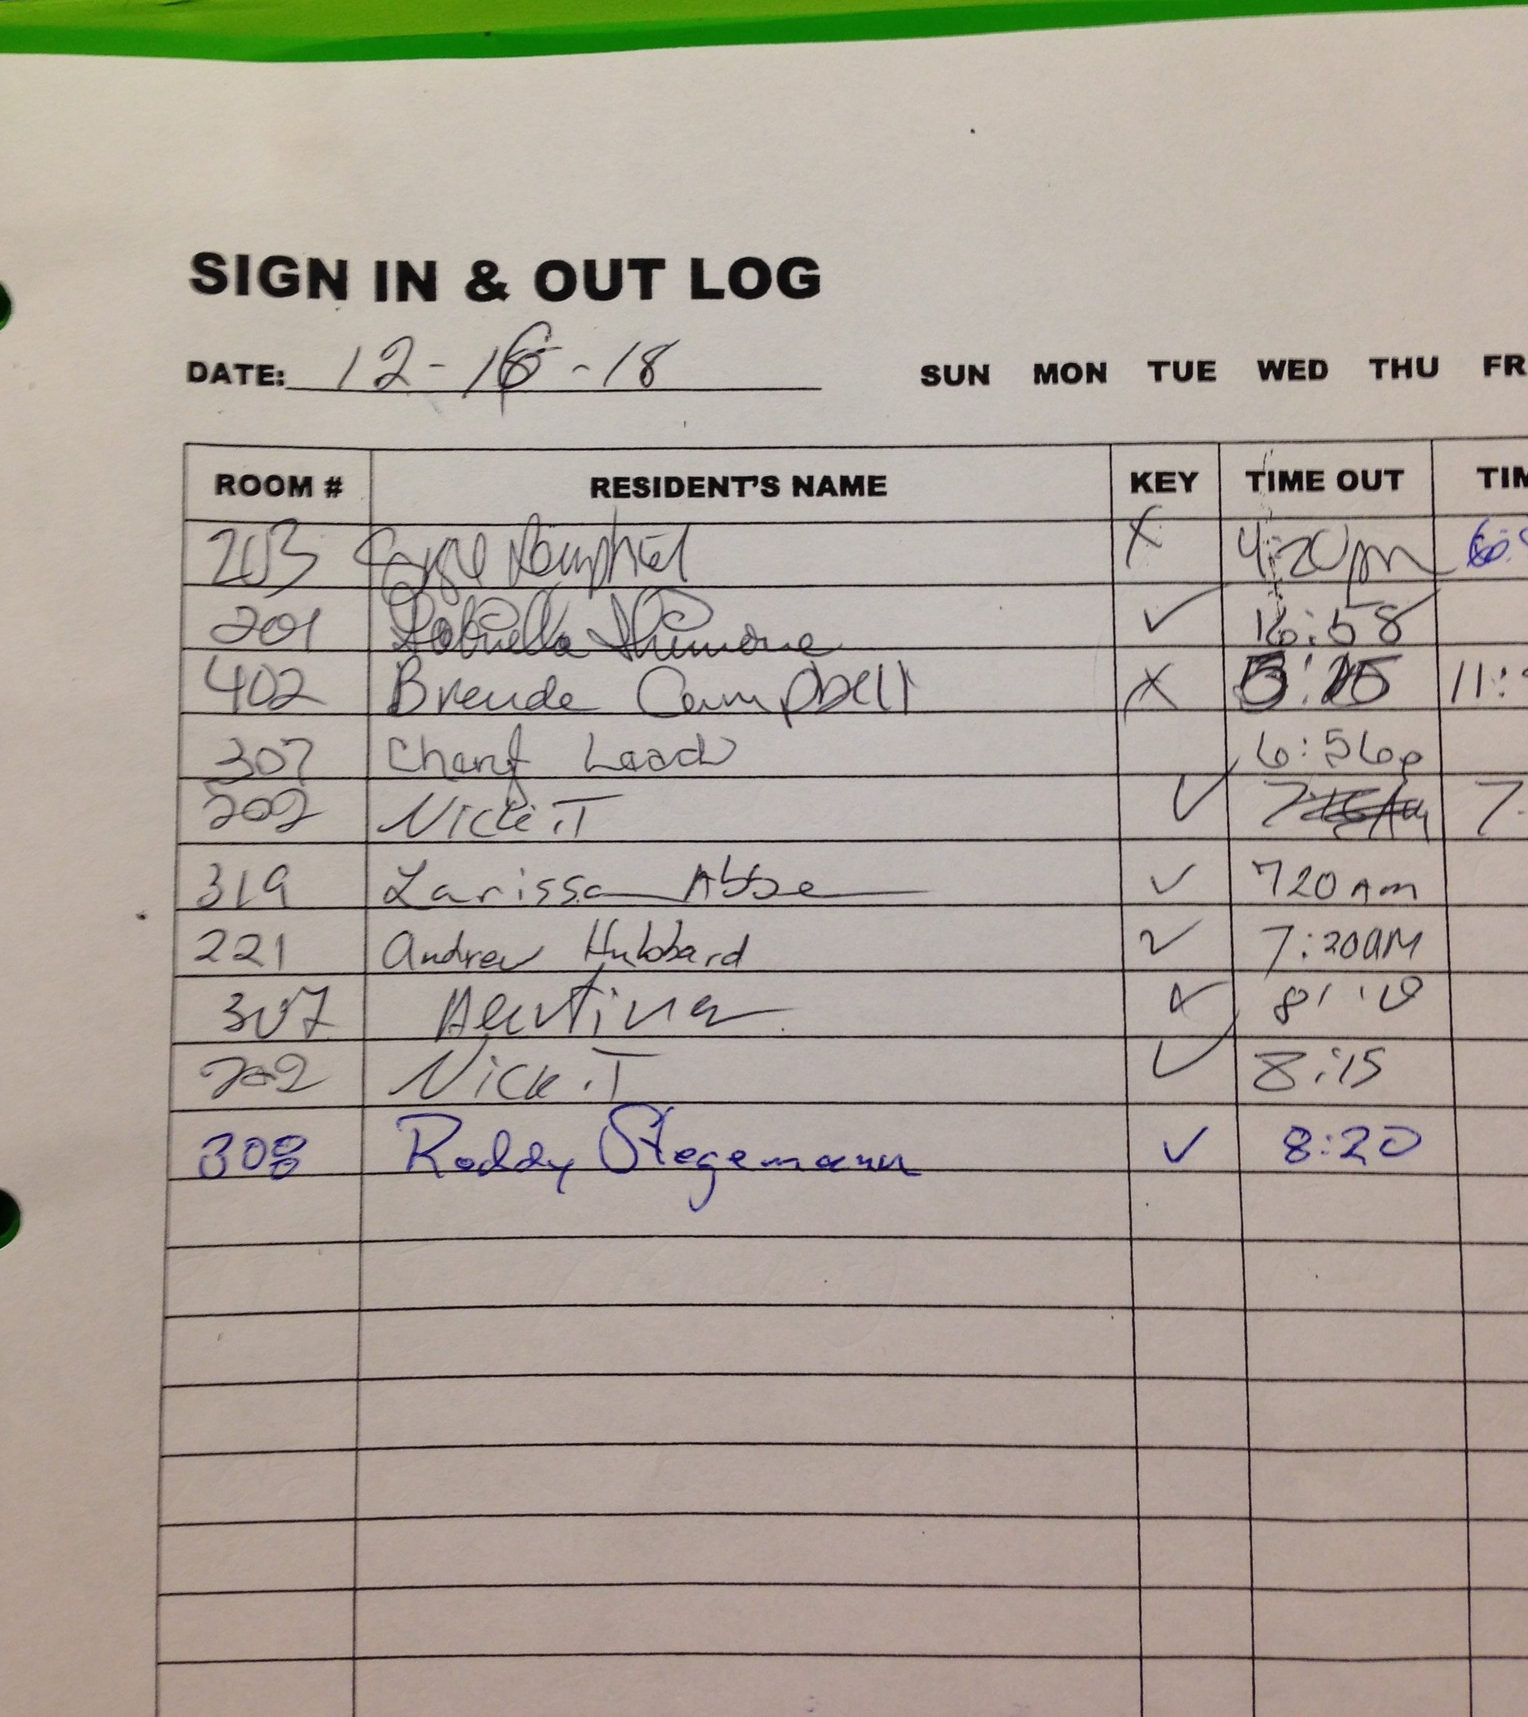 SIGN IN & OUT LOG
DATE: 12-16-18 SUN MON TUE WED THU FR
ROOM # RESIDENT'S NAME KEY TIME OUT TIM
203 X 4:20pm
201 Gabriella ✓ 16:58
402 Brenda Campbell X 11:
307 Laad 6:56p
202 Nick.T ✓ 7
319 Larissa Abbe ✓ 720 AM
221 Andrew Hubbard ✓ 7:20AM
307 X
202 Nick.T ✓ 8:15
308 Roddy Stegemann ✓ 8:20